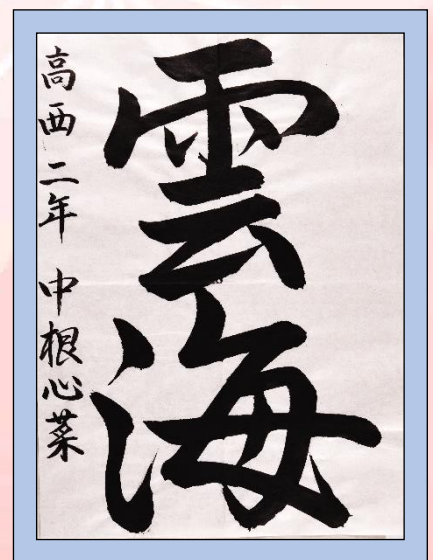 雲海
高西二年 中根心菜